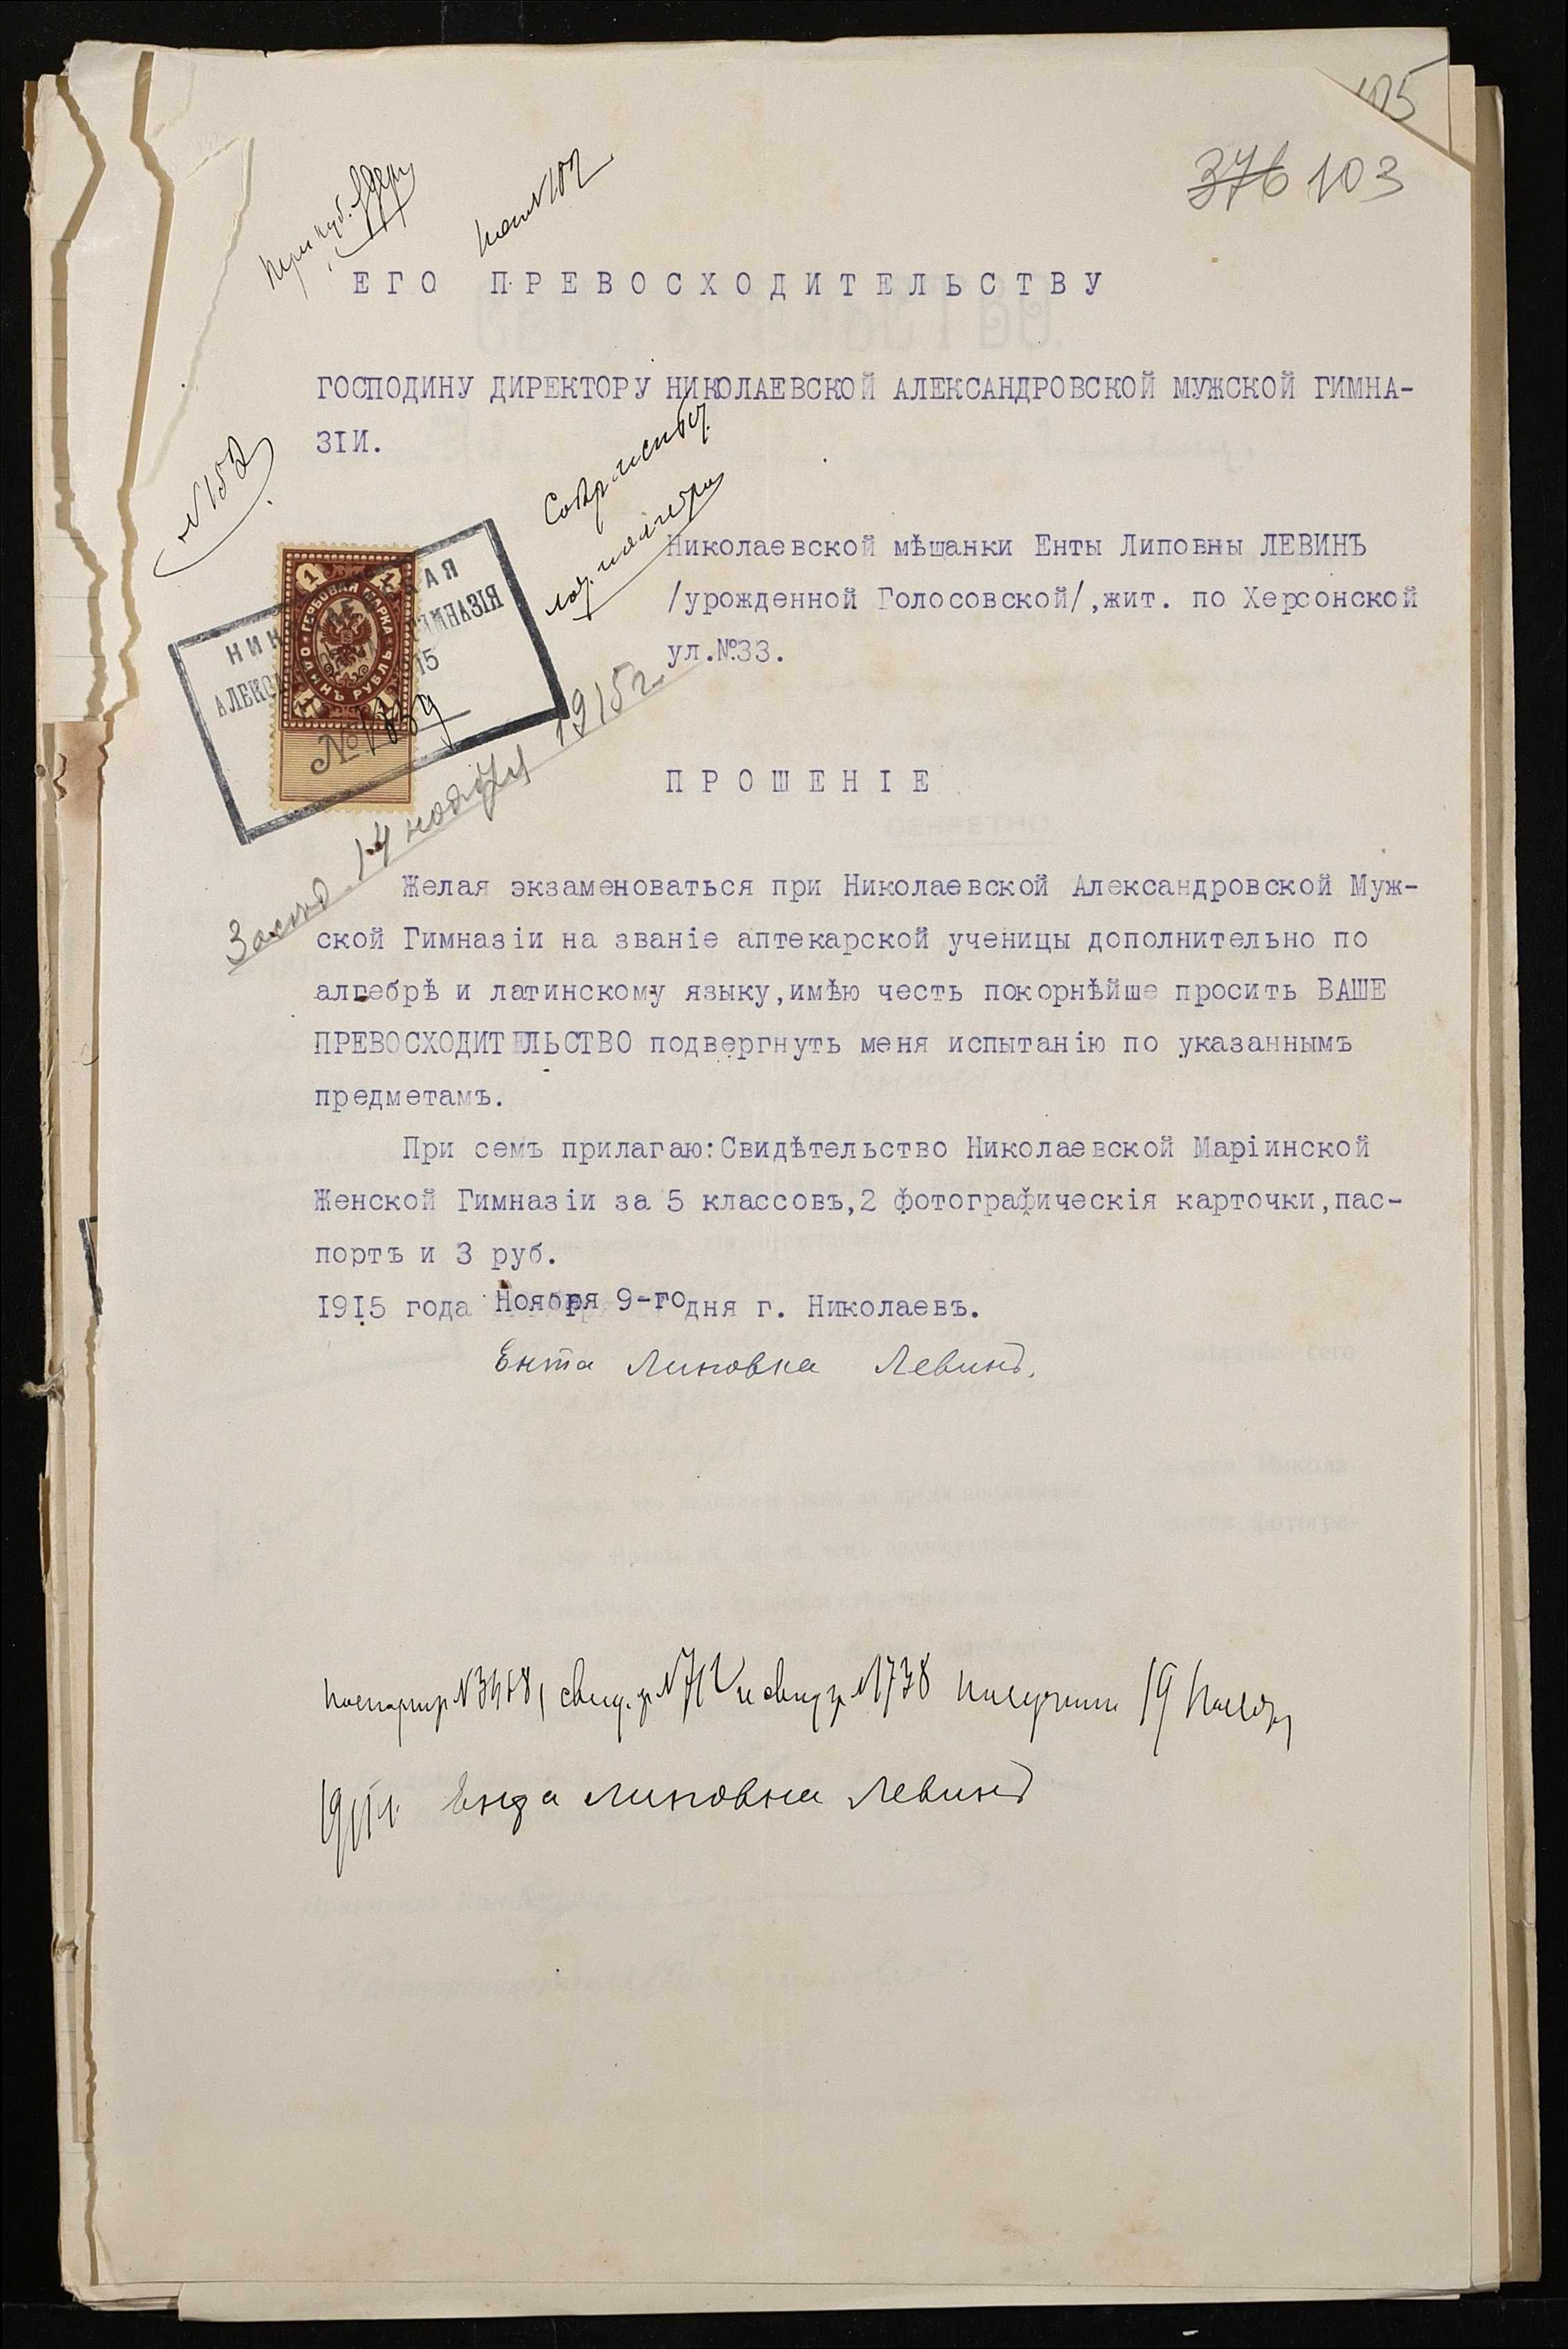 105
376 103
ЕГО ПРЕВОСХОДИТЕЛЬСТВУ
ГОСПОДИНУ ДИРЕКТОРУ НИКОЛАЕВСКОЙ АЛЕКСАНДРОВСКОЙ МУЖСКОЙ ГИМНА-
ЗІИ.
Николаевской мѣщанки Енты Липовны ЛЕВИНЪ
/урожденной Голосовской/,жит. по Херсонской
ул.№33.
№152
НИК АЯ
АЛЕКС ИМНАЗІЯ
15
ГЕРБОВАЯ МАРКА
ОДИНЪ РУБЛЬ
1 1
№1839
Засѣд. 14 ноября 1915 г.
ПРОШЕНІЕ
Желая экзаменоваться при Николаевской Александровской Муж-
ской Гимназіи на званіе аптекарской ученицы дополнительно по
алгебрѣ и латинскому языку,имѣю честь покорнѣйше просить ВАШЕ
ПРЕВОСХОДИТЕЛЬСТВО подвергнуть меня испытанію по указаннымъ
предметамъ.
При семъ прилагаю:Свидѣтельство Николаевской Маріинской
Женской Гимназіи за 5 классовъ,2 фотографическія карточки,пас-
портъ и 3 руб.
1915 года Ноября 9-го дня г. Николаевъ.
Ента Липовна Левинъ.
свид. за № и свид за №1738 получила 19 Ноября
1915 г. Ента Липовна Левинъ